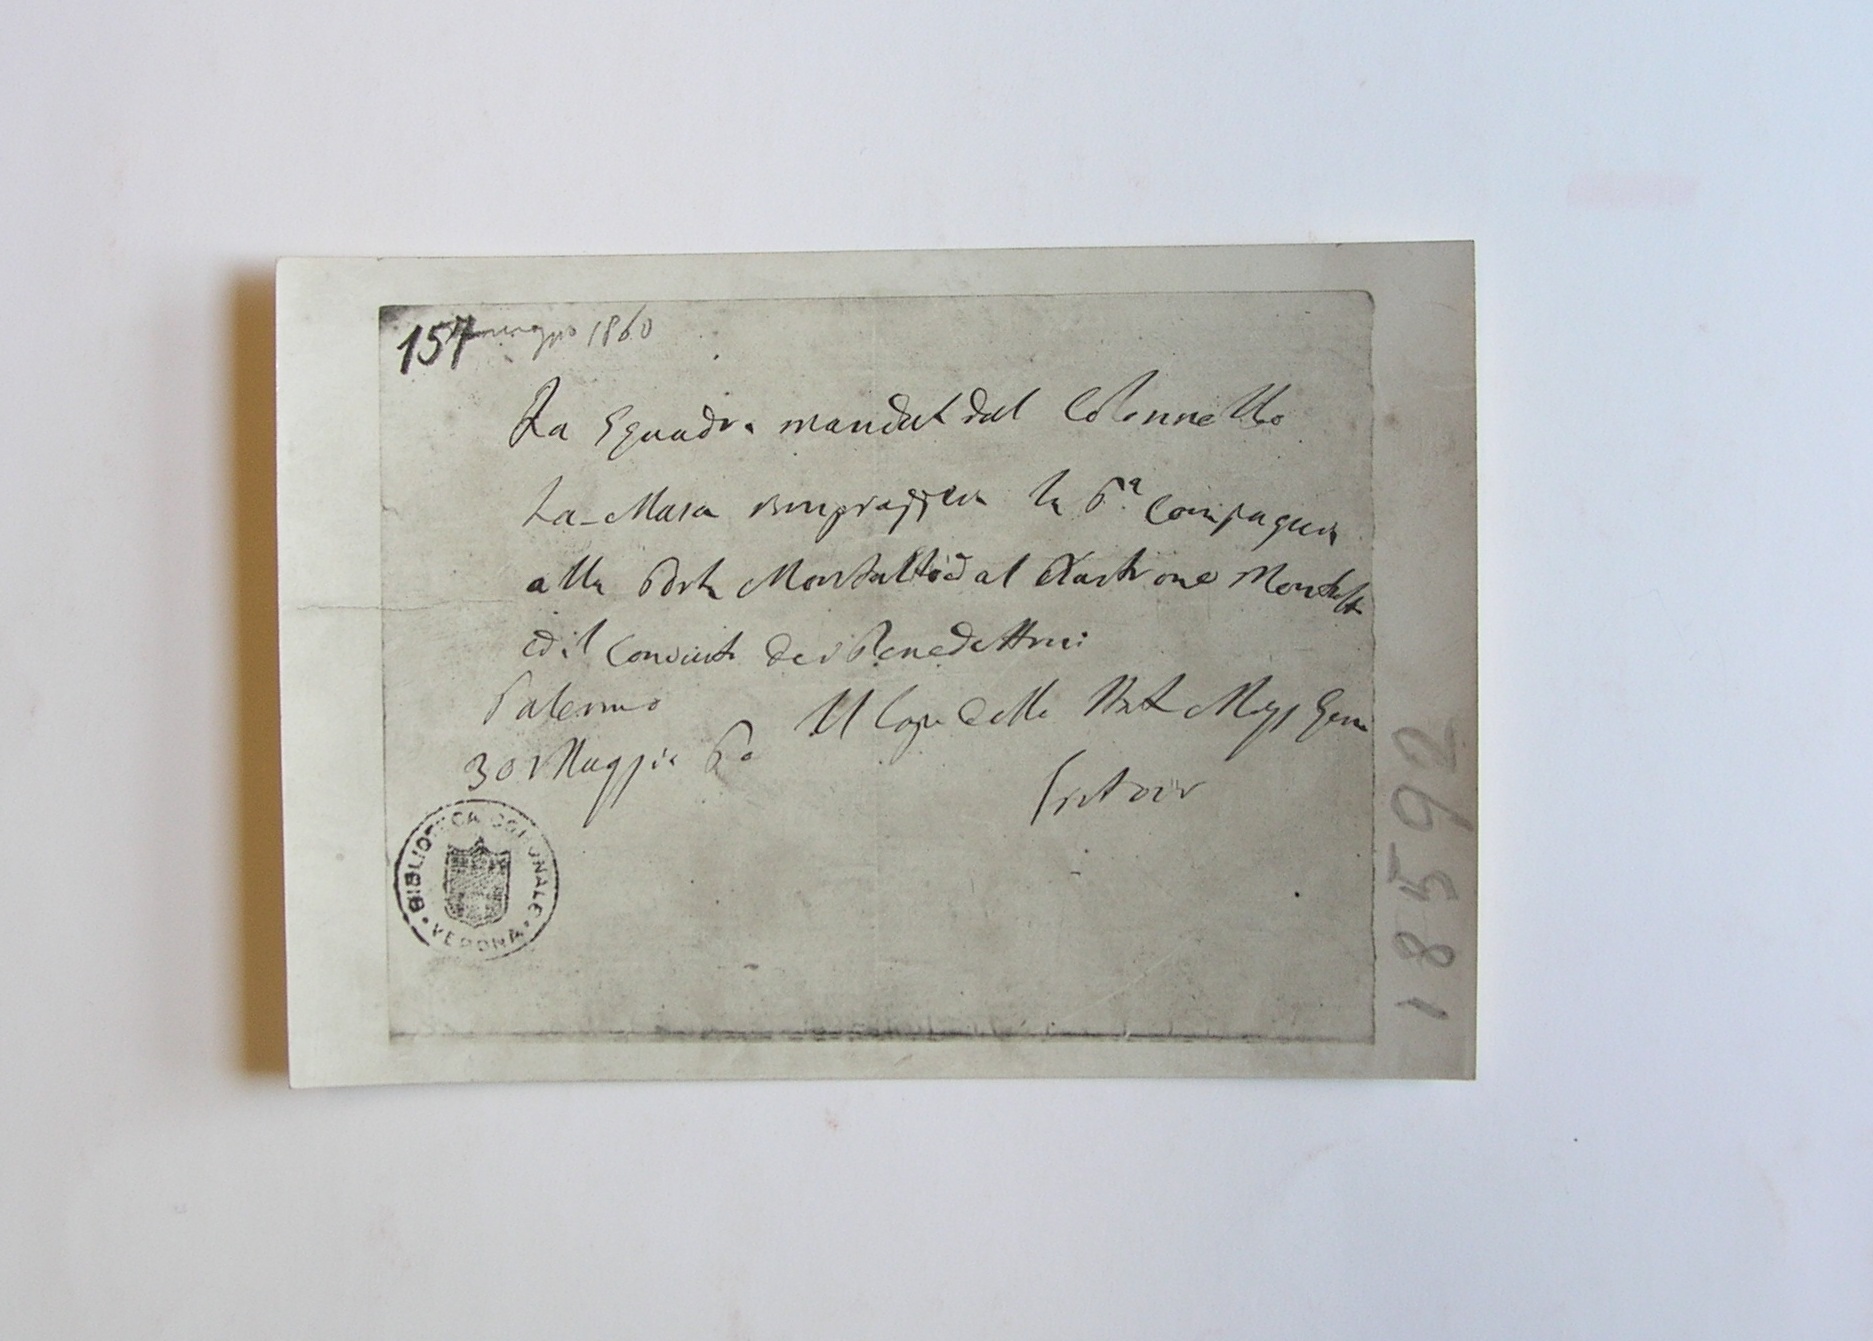 157 maggio 1860
La Squadra mandat dal Colonnello
La-Masa rimpiazzera la 6.a Compagnia
alla Porta Montalto ed al Bastione Montalto
ed il Convento dei Benedettini
Palermo
Il Capo dello Stat Magg Gen
30 Maggio 60
BIBLIOTECA COMUNALE
VERONA
18592